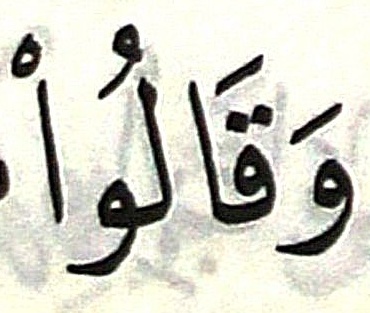 وَقَالُواْ